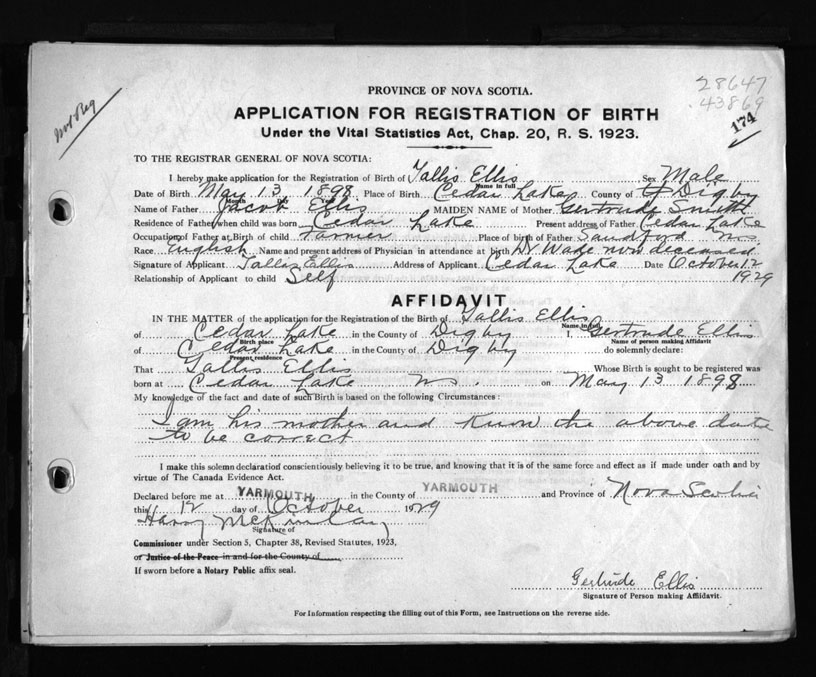 28647
43869
174
Not Reg
PROVINCE OF NOVA SCOTIA.
APPLICATION FOR REGISTRATION OF BIRTH
Under the Vital Statistics Act, Chap. 20, R. S. 1923.
TO THE REGISTRAR GENERAL OF NOVA SCOTIA:
I hereby make application for the Registration of Birth of Tallis Ellis Sex Male
Name in full
Date of Birth May 13 1898 Place of Birth Cedar Lake County of Digby
Month Day Year
Name of Father Jacob Ellis MAIDEN NAME of Mother Gertrude Smith
Residence of Father when child was born Cedar Lake Present address of Father Cedar Lake
Occupation of Father at Birth of child Farmer Place of birth of Father Sandford N.S.
Race English Name and present address of Physician in attendance at birth Dr Wade now deceased
Signature of Applicant Tallis Ellis Address of Applicant Cedar Lake Date October 12
Relationship of Applicant to child Self 1929
AFFIDAVIT
IN THE MATTER of the application for the Registration of the Birth of Tallis Ellis
Name in full
of Cedar Lake in the County of Digby I, Gertrude Ellis
Birth place Name of person making Affidavit
of Cedar Lake in the County of Digby do solemnly declare:
Present residence
That Tallis Ellis Whose Birth is sought to be registered was
born at Cedar Lake N.S. on May 13 1898
My knowledge of the fact and date of such Birth is based on the following Circumstances:
I am his mother and know the above date
to be correct
I make this solemn declaration conscientiously believing it to be true, and knowing that it is of the same force and effect as if made under oath and by
virtue of The Canada Evidence Act.
Declared before me at YARMOUTH in the County of YARMOUTH and Province of Nova Scotia
this 12 day of October 1929
Harry McKinlay
Signature of
Commissioner under Section 5, Chapter 38, Revised Statutes, 1923,
or Justice of the Peace in and for the County of
If sworn before a Notary Public affix seal.
Gertrude Ellis
Signature of Person making Affidavit.
For Information respecting the filling out of this Form, see Instructions on the reverse side.